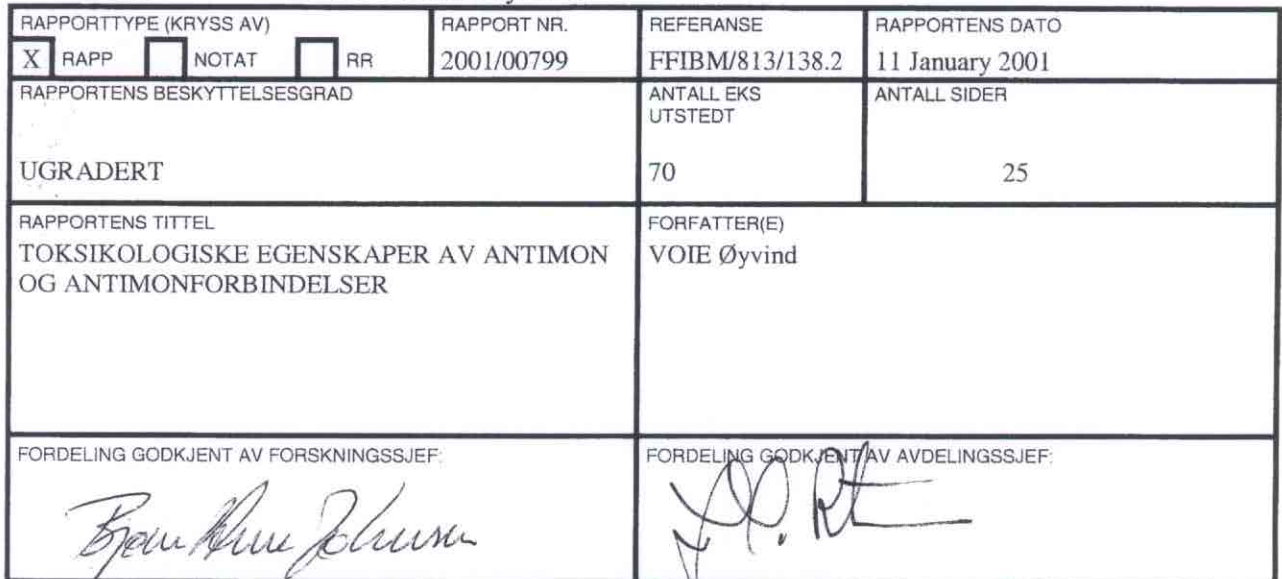 RAPPORTTYPE (KRYSS AV)
X RAPP NOTAT RR
RAPPORT NR.
2001/00799
REFERANSE
FFIBM/813/138.2
RAPPORTENS DATO
11 January 2001
RAPPORTENS BESKYTTELSESGRAD
UGRADERT
ANTALL EKS
UTSTEDT
70
ANTALL SIDER
25
RAPPORTENS TITTEL
TOKSIKOLOGISKE EGENSKAPER AV ANTIMON
OG ANTIMONFORBINDELSER
FORFATTER(E)
VOIE Øyvind
FORDELING GODKJENT AV FORSKNINGSSJEF:
FORDELING GODKJENT AV AVDELINGSSJEF: